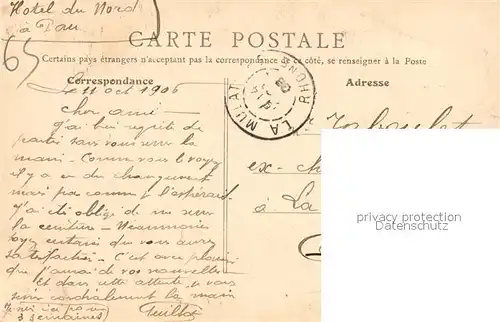 Hotel du Nord
à Pau
65
CARTE POSTALE
Certains pays étrangers n'acceptant pas la correspondance de ce côté, se renseigner à la Poste
Correspondance
Adresse
Le 11 oct 1906
Cher ami
J'ai bien regretté de
partir sans vous serrer la
main. Comme vous le voyez
il y a eu du changement
mais pas comme je l'espérais
J'ai été obligé de me serrer
la ceinture. Néanmoins
certain que vous aurez
satisfaction. C'est avec plaisir
que j'aurai de vos nouvelles
et dans cette attente je vous
serre cordialement la main
3 semaines
LA MULAT
RHONE
ex-
à La
privacy protection
Datenschutz